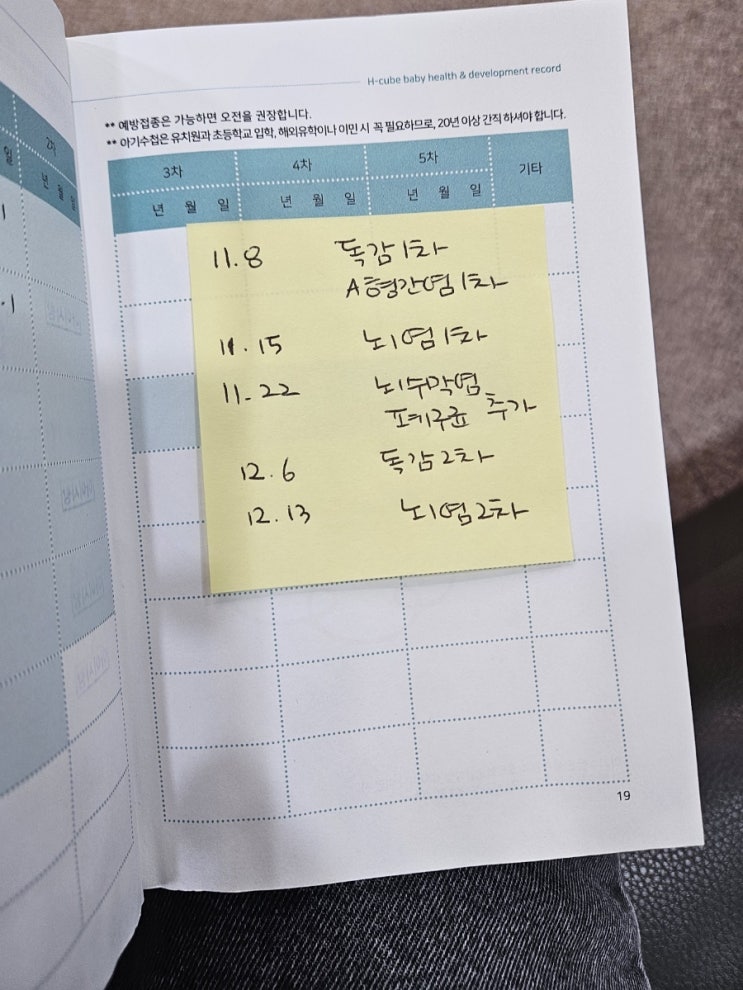 H-cube baby health & development record
** 예방접종은 가능하면 오전을 권장합니다.
** 아기수첩은 유치원과 초등학교 입학, 해외유학이나 이민 시 꼭 필요하므로, 20년 이상 간직 하셔야 합니다.
2차
일 년 월 일
3차 4차 5차 기타
년 월 일 년 월 일 년 월 일
11.8 독감 1차
A형간염 1차
11.15 뇌염 1차
11.22 뇌수막염
폐구균 추가
12.6 독감 2차
12.13 뇌염 2차
19